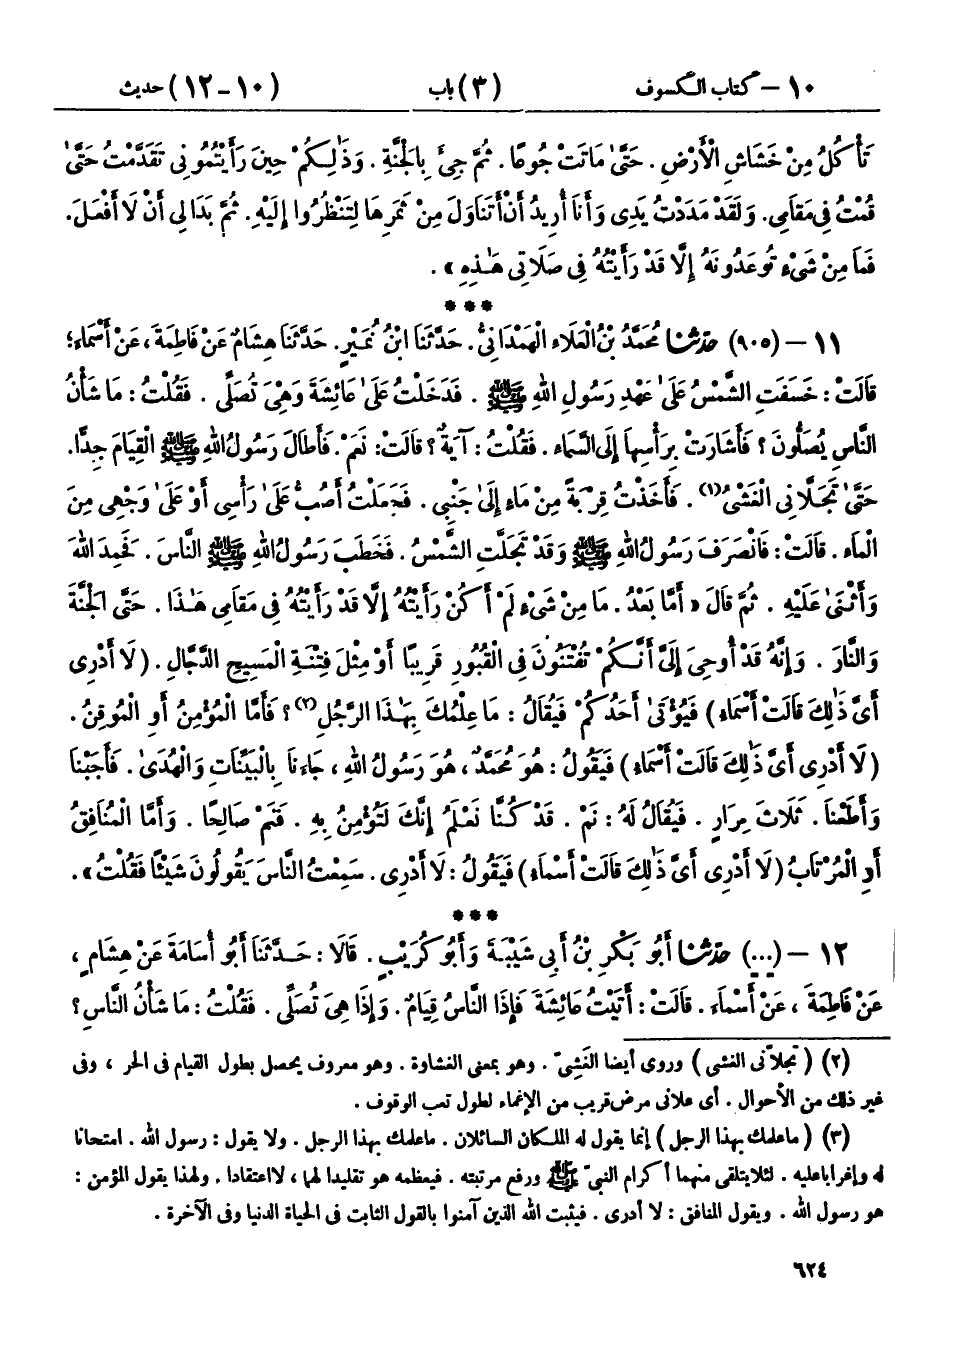 ١٠ – كتاب الكسوف (٣) باب (١٠–١٢) حديث
تَأْكُلُ مِنْ خَشَاشِ الْأَرْضِ . حَتَّىٰ مَاتَتْ جُوعًا . ثُمَّ جِيءَ بِالْجَنَّةِ . وَذَٰلِكُمْ حِينَ رَأَيْتُمُونِي تَقَدَّمْتُ حَتَّىٰ
قُمْتُ فِي مَقَامِي. وَلَقَدْ مَدَدْتُ يَدِي وَأَنَا أُرِيدُ أَنْ أَتَنَاوَلَ مِنْ ثَمَرِهَا لِتَنْظُرُوا إِلَيْهِ. ثُمَّ بَدَا لِي أَنْ لَا أَفْعَلَ.
فَمَا مِنْ شَيْءٍ تُوعَدُونَهُ إِلَّا قَدْ رَأَيْتُهُ فِي صَلَاتِي هَـٰذِهِ » .
***
١١ – (٩٠٥) حدثنا مُحَمَّدُ بْنُ الْعَلَاءِ الْهَمْدَانِيُّ. حَدَّثَنَا ابْنُ نُمَيْرٍ. حَدَّثَنَا هِشَامٌ عَنْ فَاطِمَةَ ، عَنْ أَسْمَاءَ ؛
قَالَتْ : خَسَفَتِ الشَّمْسُ عَلَىٰ عَهْدِ رَسُولِ اللهِ ﷺ . فَدَخَلْتُ عَلَىٰ عَائِشَةَ وَهِيَ تُصَلِّي . فَقُلْتُ : مَا شَأْنُ
النَّاسِ يُصَلُّونَ ؟ فَأَشَارَتْ بِرَأْسِهَا إِلَى السَّمَاءِ . فَقُلْتُ : آيَةٌ ؟ قَالَتْ: نَعَمْ. فَأَطَالَ رَسُولُ اللهِ ﷺ الْقِيَامَ جِدًّا.
حَتَّىٰ تَجَلَّانِي الْغَشْيُ(١) . فَأَخَذْتُ قِرْبَةً مِنْ مَاءٍ إِلَىٰ جَنْبِي . فَجَعَلْتُ أَصُبُّ عَلَىٰ رَأْسِي أَوْ عَلَىٰ وَجْهِي مِنَ
الْمَاءِ . قَالَتْ: فَانْصَرَفَ رَسُولُ اللهِ ﷺ وَقَدْ تَجَلَّتِ الشَّمْسُ . فَخَطَبَ رَسُولُ اللهِ ﷺ النَّاسَ . فَحَمِدَ اللهَ
وَأَثْنَىٰ عَلَيْهِ . ثُمَّ قَالَ « أَمَّا بَعْدُ . مَا مِنْ شَيْءٍ لَمْ أَكُنْ رَأَيْتُهُ إِلَّا قَدْ رَأَيْتُهُ فِي مَقَامِي هَـٰذَا . حَتَّى الْجَنَّةَ
وَالنَّارَ . وَإِنَّهُ قَدْ أُوحِيَ إِلَيَّ أَنَّكُمْ تُفْتَنُونَ فِي الْقُبُورِ قَرِيبًا أَوْ مِثْلَ فِتْنَةِ الْمَسِيحِ الدَّجَّالِ . ( لَا أَدْرِي
أَيَّ ذَٰلِكَ قَالَتْ أَسْمَاءُ ) فَيُؤْتَىٰ أَحَدُكُمْ فَيُقَالُ : مَا عِلْمُكَ بِهَـٰذَا الرَّجُلِ(٢) ؟ فَأَمَّا الْمُؤْمِنُ أَوِ الْمُوقِنُ .
( لَا أَدْرِي أَيَّ ذَٰلِكَ قَالَتْ أَسْمَاءُ ) فَيَقُولُ : هُوَ مُحَمَّدٌ ، هُوَ رَسُولُ اللهِ ، جَاءَنَا بِالْبَيِّنَاتِ وَالْهُدَىٰ . فَأَجَبْنَا
وَأَطَعْنَا . ثَلَاثَ مِرَارٍ . فَيُقَالُ لَهُ : نَمْ . قَدْ كُنَّا نَعْلَمُ إِنَّكَ لَتُؤْمِنُ بِهِ . فَنَمْ صَالِحًا . وَأَمَّا الْمُنَافِقُ
أَوِ الْمُرْتَابُ ( لَا أَدْرِي أَيَّ ذَٰلِكَ قَالَتْ أَسْمَاءُ ) فَيَقُولُ : لَا أَدْرِي . سَمِعْتُ النَّاسَ يَقُولُونَ شَيْئًا فَقُلْتُ » .
***
١٢ – (...) حدثنا أَبُو بَكْرِ بْنُ أَبِي شَيْبَةَ وَأَبُو كُرَيْبٍ . قَالَا : حَدَّثَنَا أَبُو أُسَامَةَ عَنْ هِشَامٍ ،
عَنْ فَاطِمَةَ ، عَنْ أَسْمَاءَ . قَالَتْ : أَتَيْتُ عَائِشَةَ فَإِذَا النَّاسُ قِيَامٌ . وَإِذَا هِيَ تُصَلِّي . فَقُلْتُ : مَا شَأْنُ النَّاسِ ؟
(٢) ( تجلّاني الغشي ) وروي أيضا الغَشِيّ . وهو بمعنى الغشاوة . وهو معروف يحصل بطول القيام في الحر ، وفي
غير ذلك من الأحوال . أي علاني مرض قريب من الإغماء لطول تعب الوقوف .
(٣) ( ما علمك بهذا الرجل ) إنما يقول له الملكان السائلان . ما علمك بهذا الرجل . ولا يقول : رسول الله . امتحانا
له وإغرابا عليه . لئلا يتلقى منهما أكرام النبيّ ﷺ ورفع مرتبته . فيعظمه هو تقليدا لهما ، لا اعتقادا . ولهذا يقول المؤمن :
هو رسول الله . ويقول المنافق : لا أدري . فيثبت الله الذين آمنوا بالقول الثابت في الحياة الدنيا وفي الآخرة .
٦٢٤